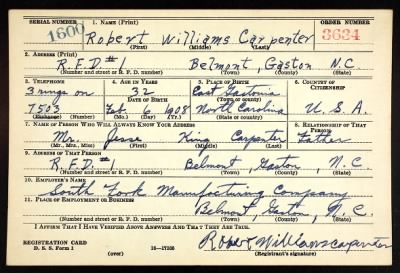 SERIAL NUMBER 1. NAME (Print) ORDER NUMBER
1600 Robert Williams Carpenter 3634
(First) (Middle) (Last)
2. ADDRESS (Print)
R.F.D.#1 Belmont, Gaston N.C.
(Number and street or R. F. D. number) (Town) (County) (State)
3. TELEPHONE 4. AGE IN YEARS 5. PLACE OF BIRTH 6. COUNTRY OF CITIZENSHIP
3 rings on 32 East Gastonia
DATE OF BIRTH (Town or county)
7503 Feb. 6 1908 North Carolina U.S.A.
(Exchange) (Number) (Mo.) (Day) (Yr.) (State or country)
7. NAME OF PERSON WHO WILL ALWAYS KNOW YOUR ADDRESS 8. RELATIONSHIP OF THAT PERSON
Mr. Jesse King Carpenter Father
(Mr., Mrs., Miss) (First) (Middle) (Last)
9. ADDRESS OF THAT PERSON
R.F.D.#1 Belmont, Gaston, N.C.
(Number and street or R. F. D. number) (Town) (County) (State)
10. EMPLOYER'S NAME
South Fork Manufacturing Company
11. PLACE OF EMPLOYMENT OR BUSINESS
Belmont, Gaston, N.C.
(Number and street or R. F. D. number) (Town) (County) (State)
I AFFIRM THAT I HAVE VERIFIED ABOVE ANSWERS AND THAT THEY ARE TRUE.
Robert Williams Carpenter
REGISTRATION CARD
D. S. S. Form 1 (over) (Registrant's signature)